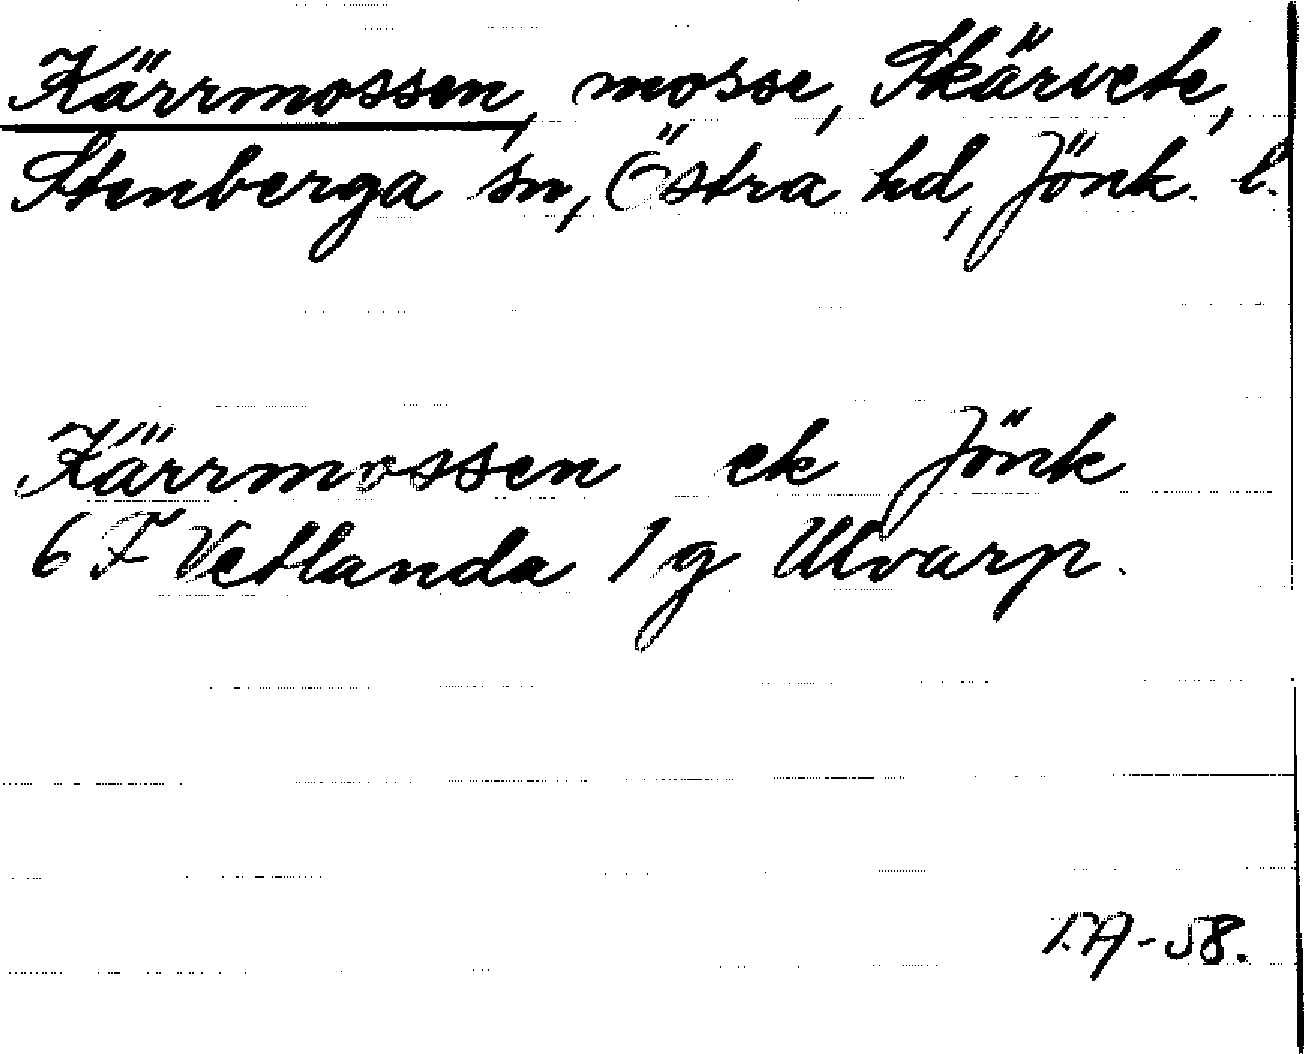 Kärrmossen, mosse, Skärvete,
Stenberga sn, Östra hd, Jönk. l.
Kärrmossen ek Jönk
6 F Vetlanda 1 g Ulvarp.
T.A-58.